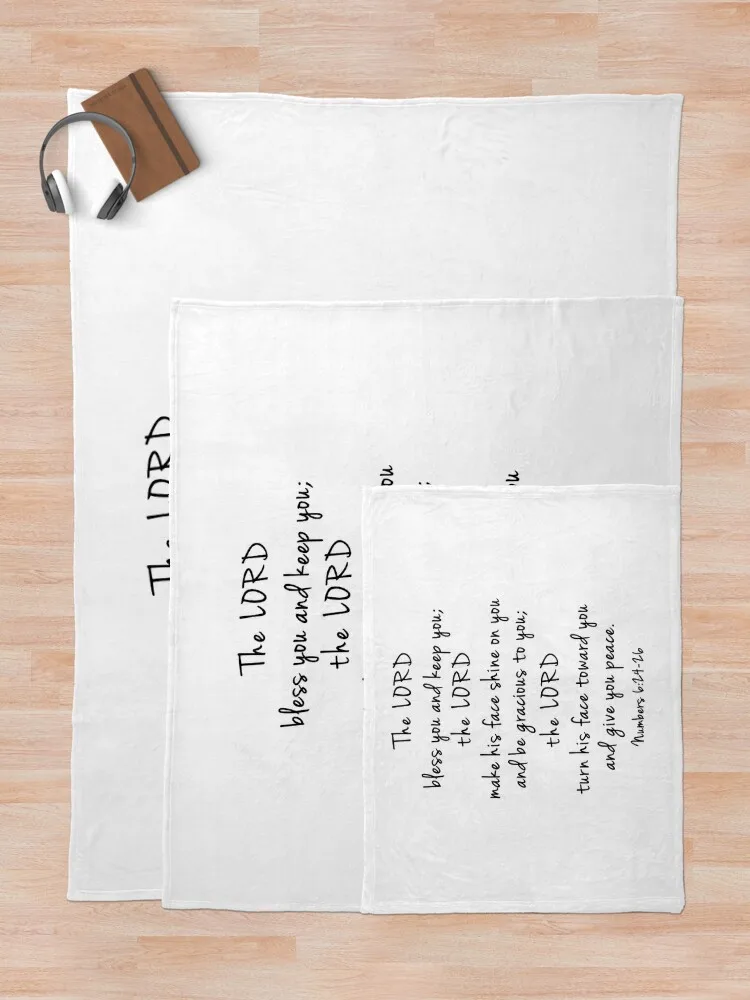 The LORD
The LORD
bless you and keep you;
the LORD
The LORD
bless you and keep you;
the LORD
make his face shine on you
and be gracious to you;
the LORD
turn his face toward you
and give you peace.
Numbers 6:24-26